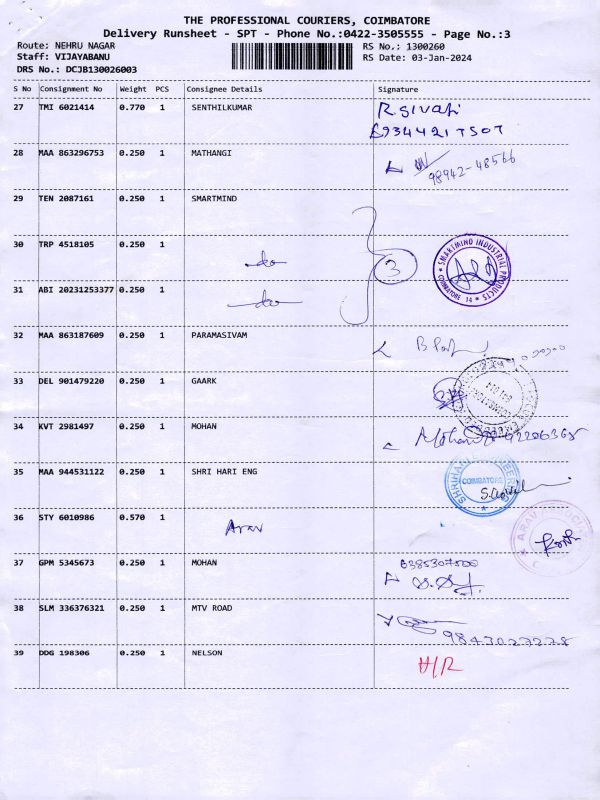 THE PROFESSIONAL COURIERS, COIMBATORE
Delivery Runsheet - SPT - Phone No.:0422-3505555 - Page No.:3
Route: NEHRU NAGAR RS No.: 1300260
Staff: VIJAYABANU RS Date: 03-Jan-2024
DRS No.: DCJB130026003
S No Consignment No Weight PCS Consignee Details Signature
27 TMI 6021414 0.770 1 SENTHILKUMAR R.Sivaji
28 MAA 863296753 0.250 1 MATHANGI
98942-48566
29 TEN 2087161 0.250 1 SMARTMIND
30 TRP 4518105 0.250 1 do 3 SMARTMIND INDUSTRIAL PRODUCTS COIMBATORE 14
31 ABI 20231253377 0.250 1 do
32 MAA 863187609 0.250 1 PARAMASIVAM
33 DEL 901479220 0.250 1 GAARK
34 KVT 2981497 0.250 1 MOHAN Mohan
35 MAA 944531122 0.250 1 SHRI HARI ENG COIMBATORE
36 STY 6010986 0.570 1 Arav ARAV
37 GPM 5345673 0.250 1 MOHAN
38 SLM 336376321 0.250 1 MTV ROAD
9843027228
39 DDG 198306 0.250 1 NELSON H/R